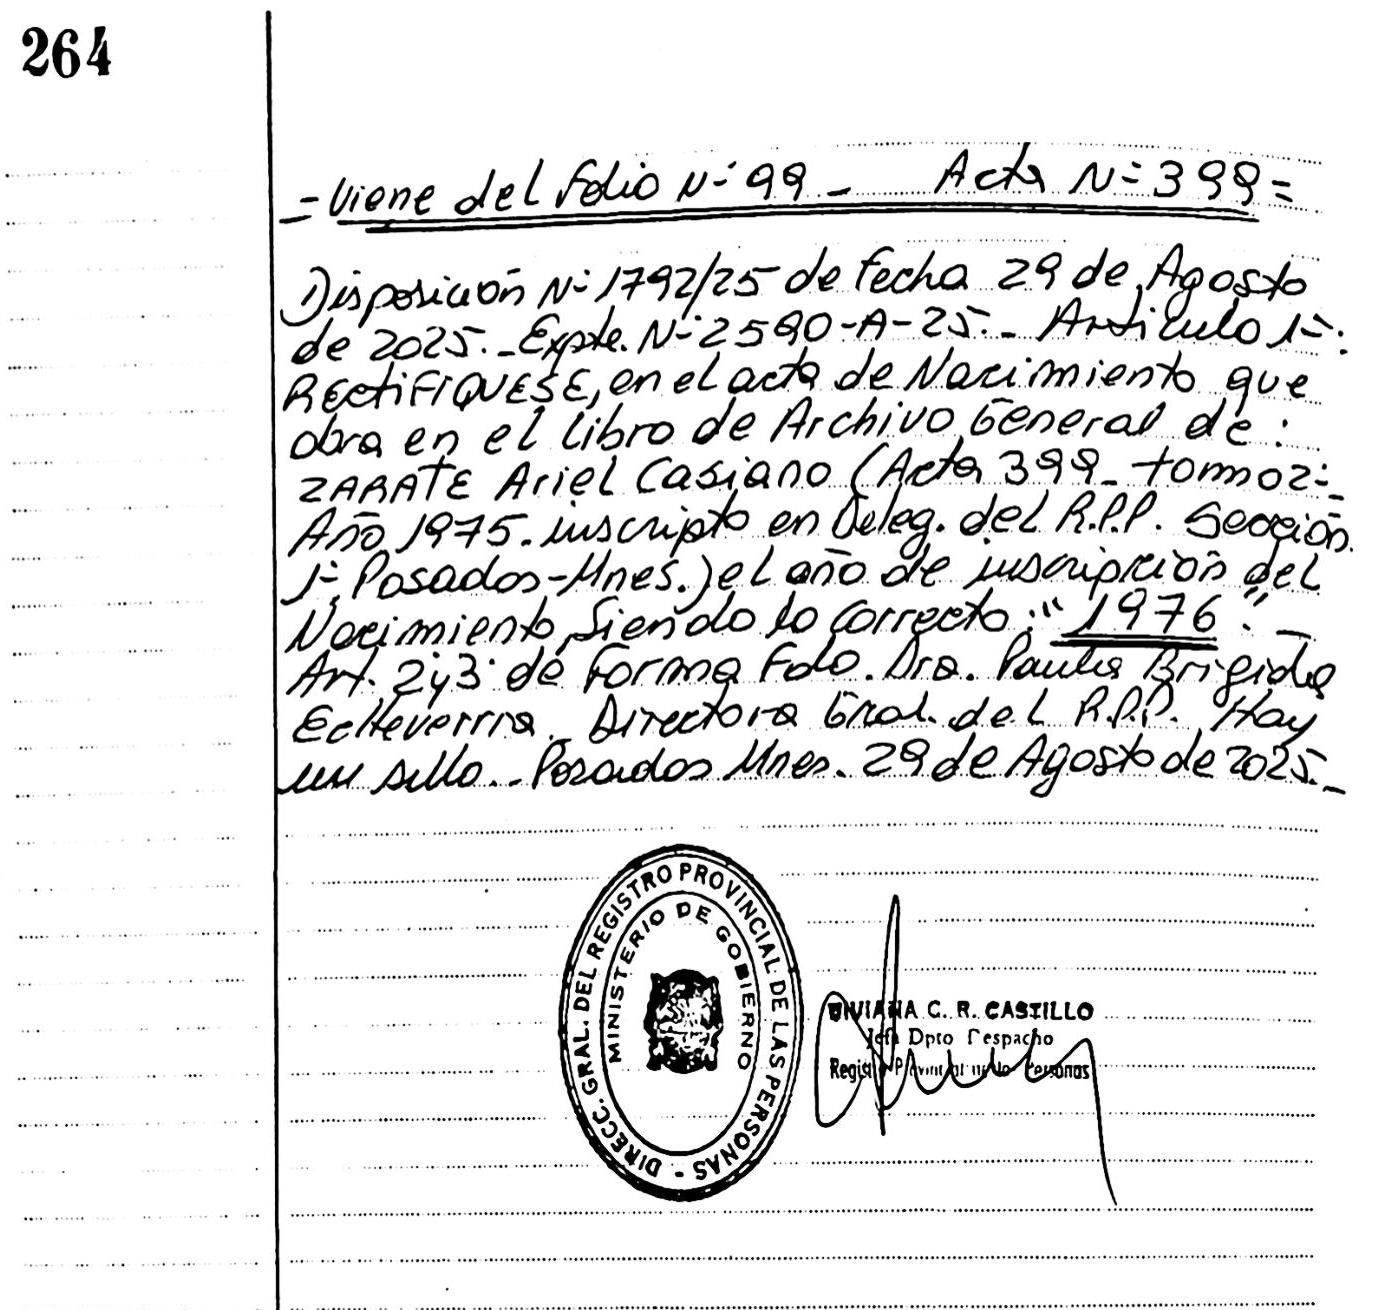 264
= Viene del Folio Nº 99 - Acta Nº 399 =
Disposición Nº 1792/25 de fecha 29 de Agosto
de 2025.-Expte. Nº 2590-A-25.- Articulo 1º:
RECtiFIQUESE, en el acta de Nacimiento que
obra en el libro de Archivo General de:
ZARATE Ariel Casiano (Acta 399 - tomo 2º-
Año 1975. inscripto en Deleg. del R.P.P. Sección
1º, Posadas-Mnes.) el año de inscripción del
Nacimiento, Siendo lo correcto: "1976". -
Art. 2y3 de forma Fdo. Dra. Paula Brigida
Echeverria. Directora Gral. del R.P.P. Hay
un sello.- Posadas Mnes. 29 de Agosto de 2025.-
DIRECC. GRAL. DEL REGISTRO PROVINCIAL DE LAS PERSONAS -
MINISTERIO DE GOBIERNO
VIVIANA C. R. CASTILLO
Jefa Dpto Despacho
Registro Provincial de las Personas